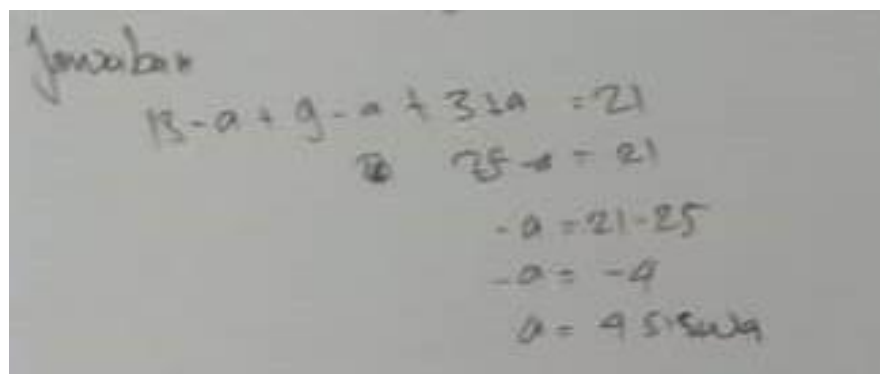 Jawaban
13 - a + 9 - a + 3 + a = 21
25 - a = 21
- a = 21 - 25
- a = - 4
a = 4 siswa